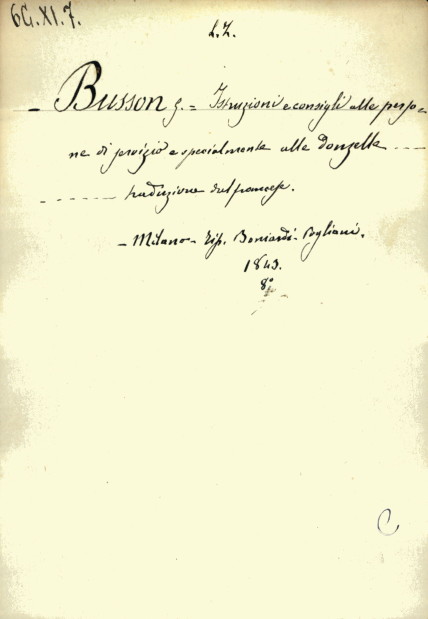 6G.XI.7.
L.Z.
- Busson G. = Istruzioni e consigli alle perso=
ne di servizio e specialmente alle donzelle ....
------ traduzione dal francese.
- Milano - Tip. Boniardi - Pogliani.
1843.
8°
C